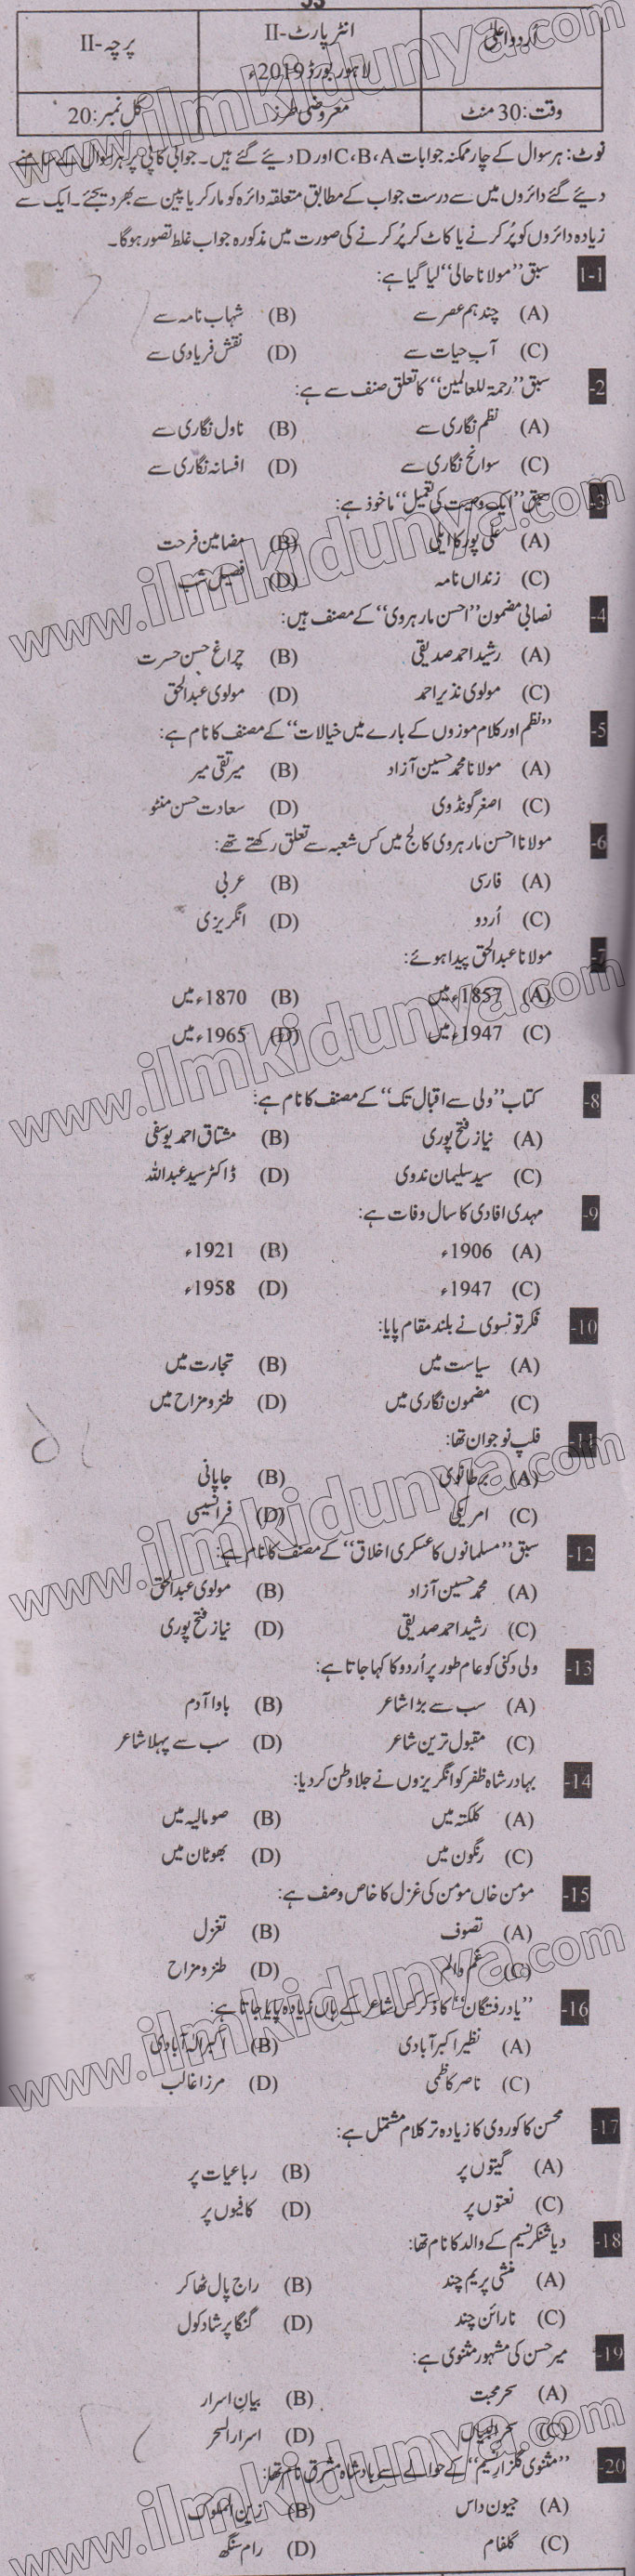 اُردو اعلیٰ
انٹر پارٹ-II
پرچہ-II
لاہور بورڈ 2019ء
وقت: 30 منٹ
معروضی طرز
کل نمبر: 20
نوٹ: ہر سوال کے چار ممکنہ جوابات C، B، A اور D دیئے گئے ہیں۔ جوابی کاپی پر ہر سوال کے سامنے
دیئے گئے دائروں میں سے درست جواب کے مطابق متعلقہ دائرہ کو مارکر یا پین سے بھر دیجئے۔ ایک سے
زیادہ دائروں کو پُر کرنے یا کاٹ کر پُر کرنے کی صورت میں مذکورہ جواب غلط تصور ہوگا۔
1-1 سبق ’’مولانا حالی‘‘ لیا گیا ہے:
(A) چند ہم عصر سے (B) شہاب نامہ سے
(C) آبِ حیات سے (D) نقش فریادی سے
2- سبق ’’رحمۃ للعالمین‘‘ کا تعلق صنف سے ہے:
(A) نظم نگاری سے (B) ناول نگاری سے
(C) سوانح نگاری سے (D) افسانہ نگاری سے
3- سبق ’’ایک وصیت کی تعمیل‘‘ ماخوذ ہے:
(A) علی پور کا ایلی (B) مضامین فرحت
(C) زنداں نامہ (D) فصیل شب
4- نصابی مضمون ’’احسن مارہروی‘‘ کے مصنف ہیں:
(A) رشید احمد صدیقی (B) چراغ حسن حسرت
(C) مولوی نذیر احمد (D) مولوی عبدالحق
5- ’’نظم اور کلام موزوں کے بارے میں خیالات‘‘ کے مصنف کا نام ہے:
(A) مولانا محمد حسین آزاد (B) میر تقی میر
(C) اصغر گونڈوی (D) سعادت حسن منٹو
6- مولانا احسن مارہروی کالج میں کس شعبہ سے تعلق رکھتے تھے:
(A) فارسی (B) عربی
(C) اُردو (D) انگریزی
7- مولانا عبدالحق پیدا ہوئے:
(A) 1857ء میں (B) 1870ء میں
(C) 1947ء میں (D) 1965ء میں
8- کتاب ’’ولی سے اقبال تک‘‘ کے مصنف کا نام ہے:
(A) نیاز فتح پوری (B) مشتاق احمد یوسفی
(C) سید سلیمان ندوی (D) ڈاکٹر سید عبداللہ
9- مہدی افادی کا سال وفات ہے:
(A) 1906ء (B) 1921ء
(C) 1947ء (D) 1958ء
10- فکر تونسوی نے بلند مقام پایا:
(A) سیاست میں (B) تجارت میں
(C) مضمون نگاری میں (D) طنز و مزاح میں
11- فلپ نوجوان تھا:
(A) برطانوی (B) جاپانی
(C) امریکی (D) فرانسیسی
12- سبق ’’مسلمانوں کا عسکری اخلاق‘‘ کے مصنف کا نام ہے:
(A) محمد حسین آزاد (B) مولوی عبدالحق
(C) رشید احمد صدیقی (D) نیاز فتح پوری
13- ولی دکنی کو عام طور پر اُردو کا کہا جاتا ہے:
(A) سب سے بڑا شاعر (B) باوا آدم
(C) مقبول ترین شاعر (D) سب سے پہلا شاعر
14- بہادر شاہ ظفر کو انگریزوں نے جلا وطن کر دیا:
(A) کلکتہ میں (B) صومالیہ میں
(C) رنگون میں (D) بھوٹان میں
15- مومن خاں مومن کی غزل کا خاص وصف ہے:
(A) تصوف (B) تغزل
(C) غم و الم (D) طنز و مزاح
16- ’’یاد رفتگان‘‘ کا ذکر کس شاعر کے ہاں زیادہ پایا جاتا ہے:
(A) نظیر اکبر آبادی (B) اکبر الہ آبادی
(C) ناصر کاظمی (D) مرزا غالب
17- محسن کاکوروی کا زیادہ تر کلام مشتمل ہے:
(A) گیتوں پر (B) رباعیات پر
(C) نعتوں پر (D) کافیوں پر
18- دیا شنکر نسیم کے والد کا نام تھا:
(A) منشی پریم چند (B) راج پال ٹھاکر
(C) نارائن چند (D) گنگا پرشاد کول
19- میر حسن کی مشہور مثنوی ہے:
(A) سحر محبت (B) بیان اسرار
(C) سحر البیان (D) اسرار السحر
20- ’’مثنوی گلزار نسیم‘‘ کے حوالے سے بادشاہ مشرق نام تھا:
(A) جیون داس (B) زین الملوک
(C) گلفام (D) رام سنگھ
www.ilmkidunya.com
www.ilmkidunya.com
www.ilmkidunya.com
www.ilmkidunya.com
www.ilmkidunya.com
www.ilmkidunya.com